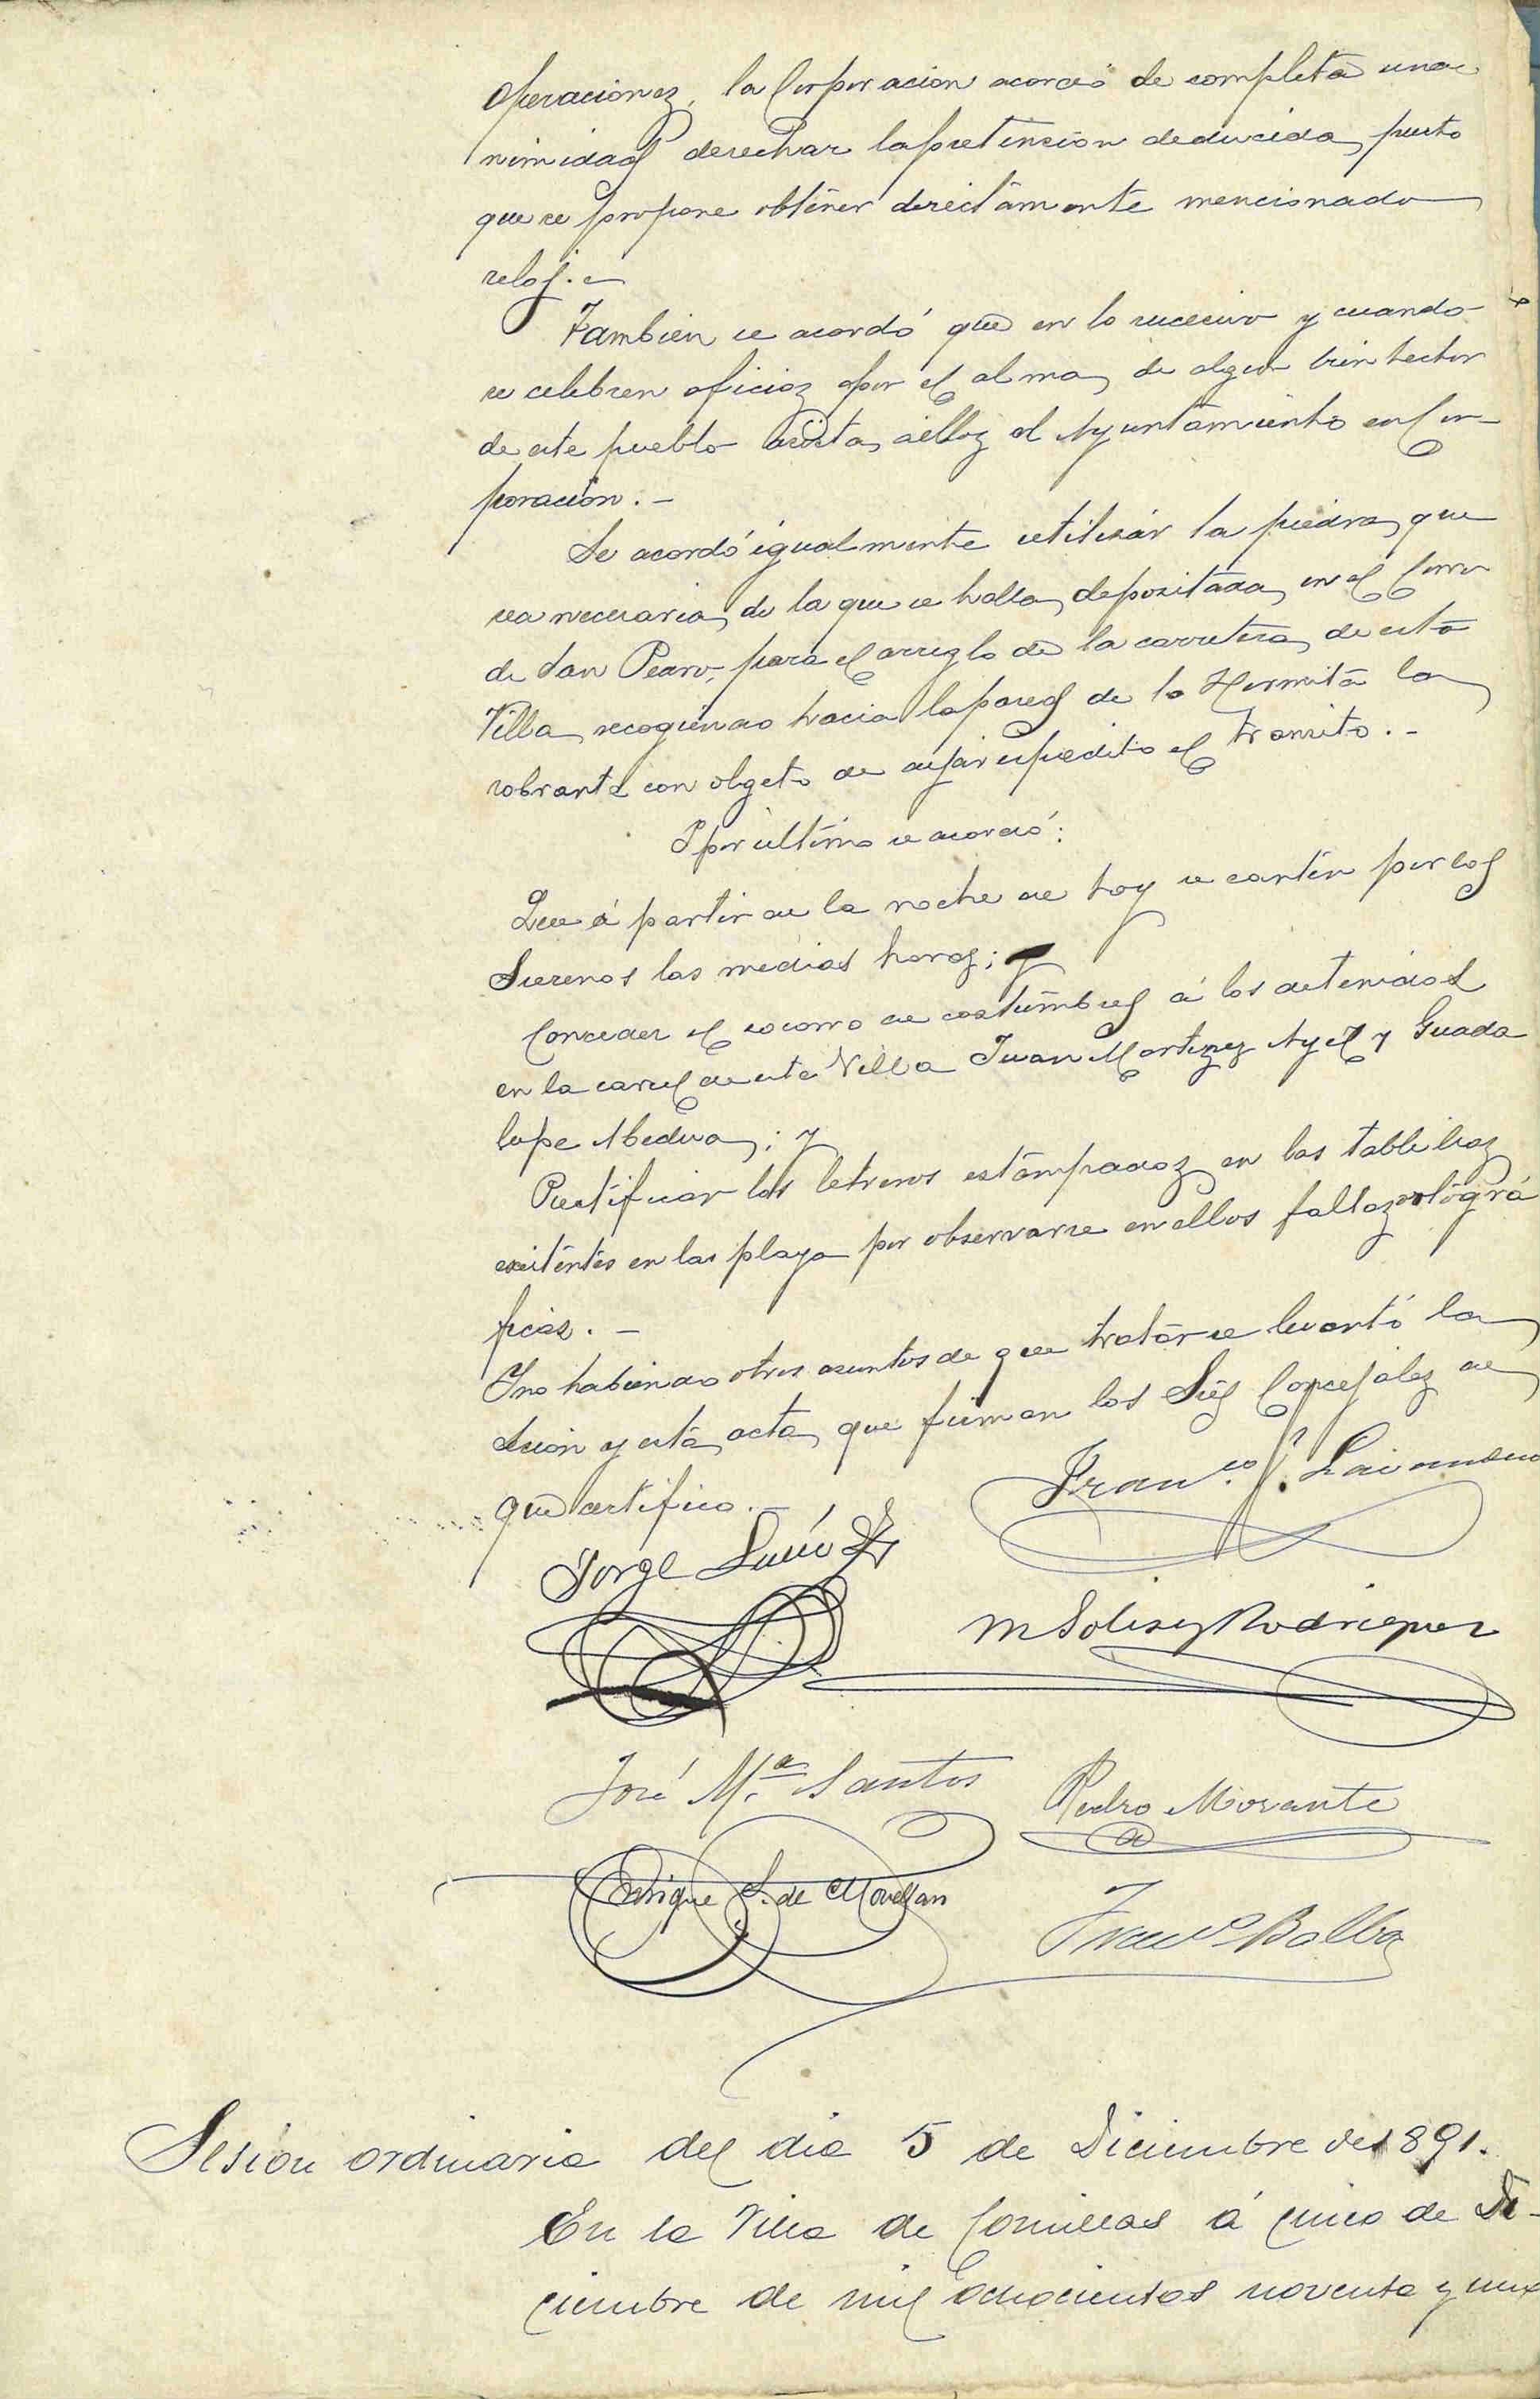 operaciones, la Corporacion acordó de completa una
nimidad desechar la pretensión deducida, puesto
que se propone obtener directamente mencionado
reloj.-
Tambien se acordó que en lo sucesivo y cuando
se celebren oficios por el alma de algun bienhechor
de este pueblo asista á ellos el Ayuntamiento en Cor-
poración.-
Se acordó igualmente utilizar la piedra que
sea necesaria de la que se halla depositada en el
de San Pedro, para el arreglo de la carretera de esta
Villa, recogiendo hacia la pared de la Hermita la
sobrante con objeto de dejar espedito el transito.-
Y por ultimo se acordó:
Que á partir de la noche de hoy se canten por los
Serenos las medias horas; y
Conceder el socorro de costumbres á los detenidos
en la carcel de esta Villa Juan Martinez y Guada
lupe Medina; y
Rectificar los letreros estampados en las tablillas
existentes en las playa por observarse en ellos faltas ortográ
ficas.-
Y no habiendo otros asuntos de que tratar se levantó la
sesión y esta acta, que firman los Sres Concejales de
que certifico.-
Franco
Jorge
M Solis y Rodriguez
José Mª Santos
Pedro Morante
Enrique S. de Movellan
Franco Balbas
Sesion ordinaria del dia 5 de Diciembre de 1891.
En la Villa de Comillas á cinco de Di-
ciembre de mil ochocientos noventa y uno